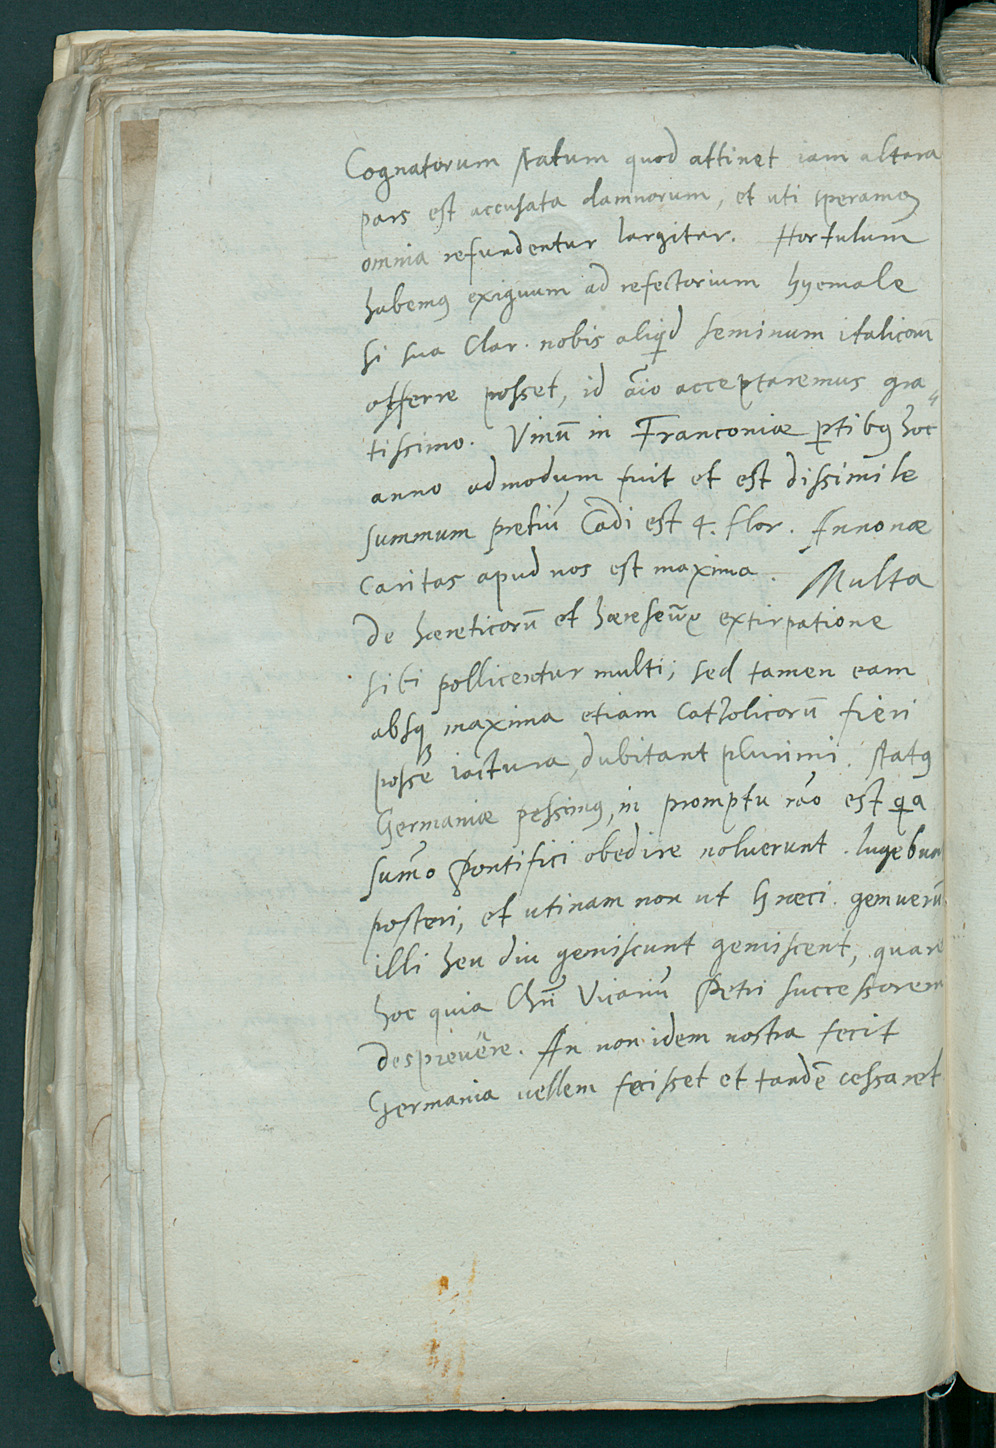 Cognatorum statum quod attinet iam altera
pars est accusata damnorum, et uti speramꝰ
omnia refundentur largiter. Hortulum
habemꝰ exiguum ad refectorium hyemale
si sua Clar. nobis aliqd seminum italicorū
offerre posset, id aīo acceptaremus gra„
tissimo. Vinū in Franconiæ ꝑtibꝰ hoc
anno admodum fuit et est dissimile
summum pretiū Cadi est 4. flor. Annonæ
caritas apud nos est maxima. Multa
de hæreticorū et hæreseūq extirpatione
sibi pollicentur multi; sed tamen eam
absqꝫ maxima etiam Catholicorū fieri
posse iactura, dubitant plurimi. Statꝰ
Germaniæ pessimꝰ, in promptu rāo est qa
sum̄o Pontifici obedire noluerunt. lugebun
posteri, et utinam non ut Græci. gemuerū
illi heu diu gemiscunt gemiscent, quare
hoc quia Chri̅ Vicariū Petri successorem
despreuēre. An non idem nostra fecit
Germania vellem fecisset et tandē cessaret